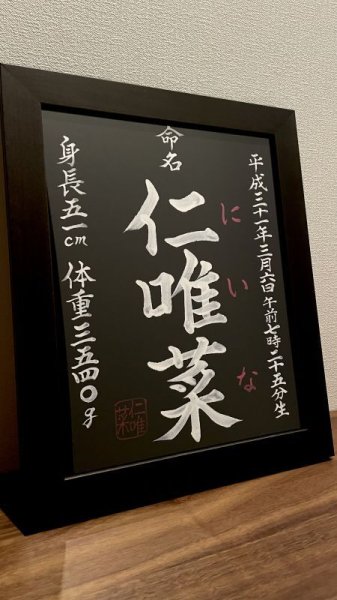 平成三十一年三月六日午前七時二十五分生
命名
仁唯菜
にいな
身長五一cm 体重三五四〇g
仁唯菜